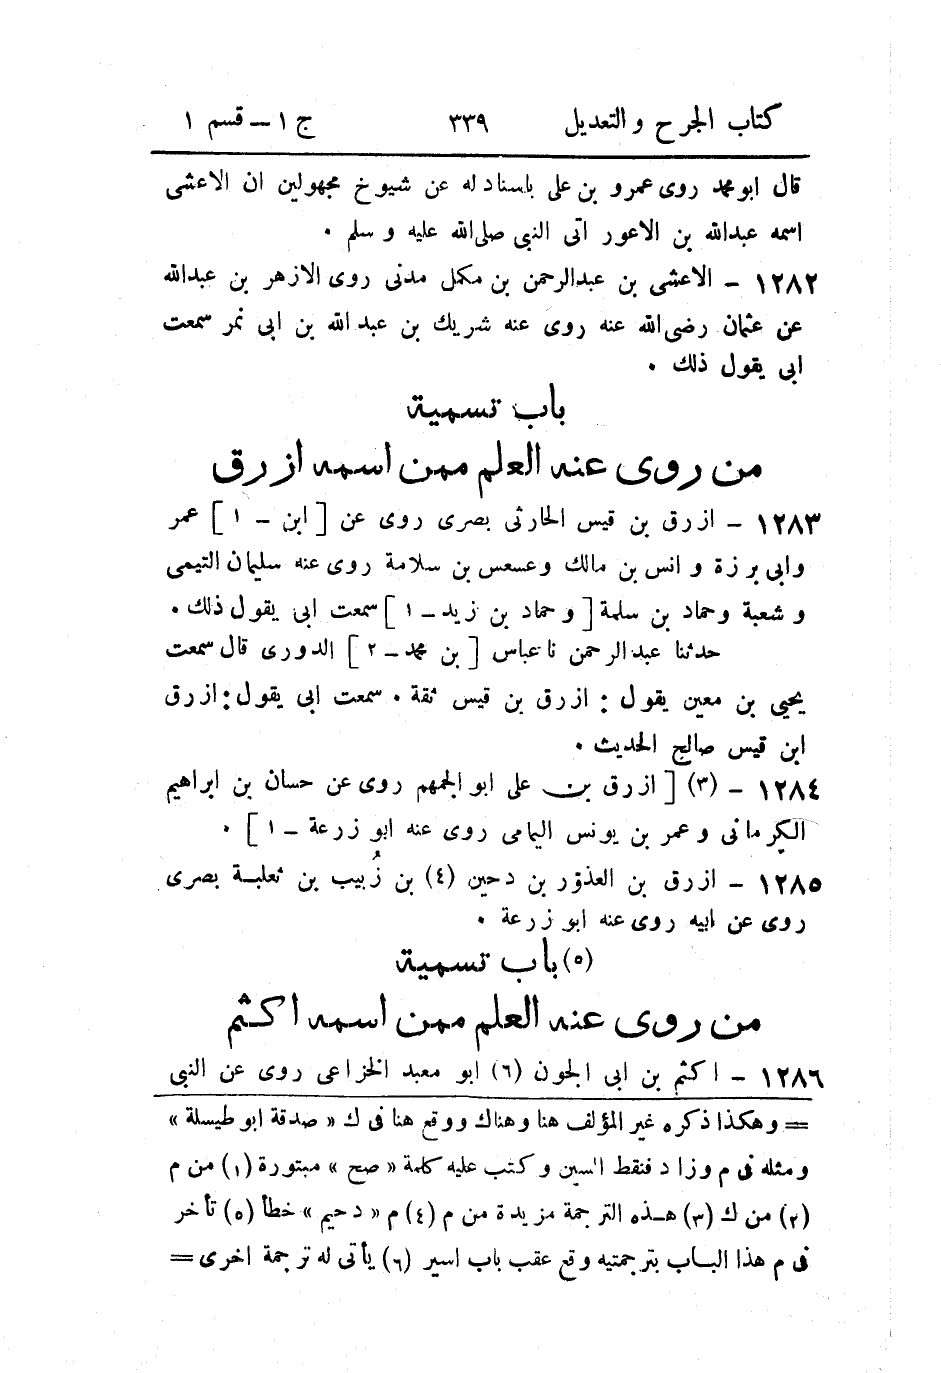 كتاب الجرح والتعديل ٣٣٩ ج ١ – قسم ١
قال ابو محمد روى عمرو بن على باسناد له عن شيوخ مجهولين ان الاعشى
اسمه عبدالله بن الاعور اتى النبى صلى الله عليه و سلم .
١٢٨٢ – الاعشى بن عبدالرحمن بن مكمل مدنى روى الازهر بن عبدالله
عن عثمان رضى الله عنه روى عنه شريك بن عبد الله بن ابى نمر سمعت
ابى يقول ذلك .
باب تسمية
من روى عنه العلم ممن اسمه ازرق
١٢٨٣ – ازرق بن قيس الحارثى بصرى روى عن [ ابن – ١ ] عمر
وابى برزة و انس بن مالك وعسعس بن سلامة روى عنه سليمان التيمى
و شعبة وحماد بن سلمة [ و حماد بن زيد – ١ ] سمعت ابى يقول ذلك .
حدثنا عبد الرحمن نا عباس [ بن محمد – ٢ ] الدورى قال سمعت
يحيى بن معين يقول : ازرق بن قيس ثقة . سمعت ابى يقول : ازرق
ابن قيس صالح الحديث .
١٢٨٤ – (٣) [ ازرق بن على ابو الجهم روى عن حسان بن ابراهيم
الكرمانى و عمر بن يونس اليمامى روى عنه ابو زرعة – ١ ] .
١٢٨٥ – ازرق بن العذور بن دحين (٤) بن زُبيب بن ثعلبة بصرى
روى عن ابيه روى عنه ابو زرعة .
(٥) باب تسمية
من روى عنه العلم ممن اسمه اكثم
١٢٨٦ – اكثم بن ابى الجون (٦) ابو معبد الخزاعى روى عن النبى
= وهكذا ذكره غير المؤلف هنا وهناك ووقع هنا فى ك « صدقة ابو طيسلة »
ومثله فى م وزاد فنقط السين وكتب عليه كلمة « صح » مبتورة (١) من م
(٢) من ك (٣) هذه الترجمة مزيدة من م (٤) م « دحيم » خطأ (٥) تأخر
فى م هذا الباب بترجمتيه وقع عقب باب اسير (٦) يأتى له ترجمة اخرى =